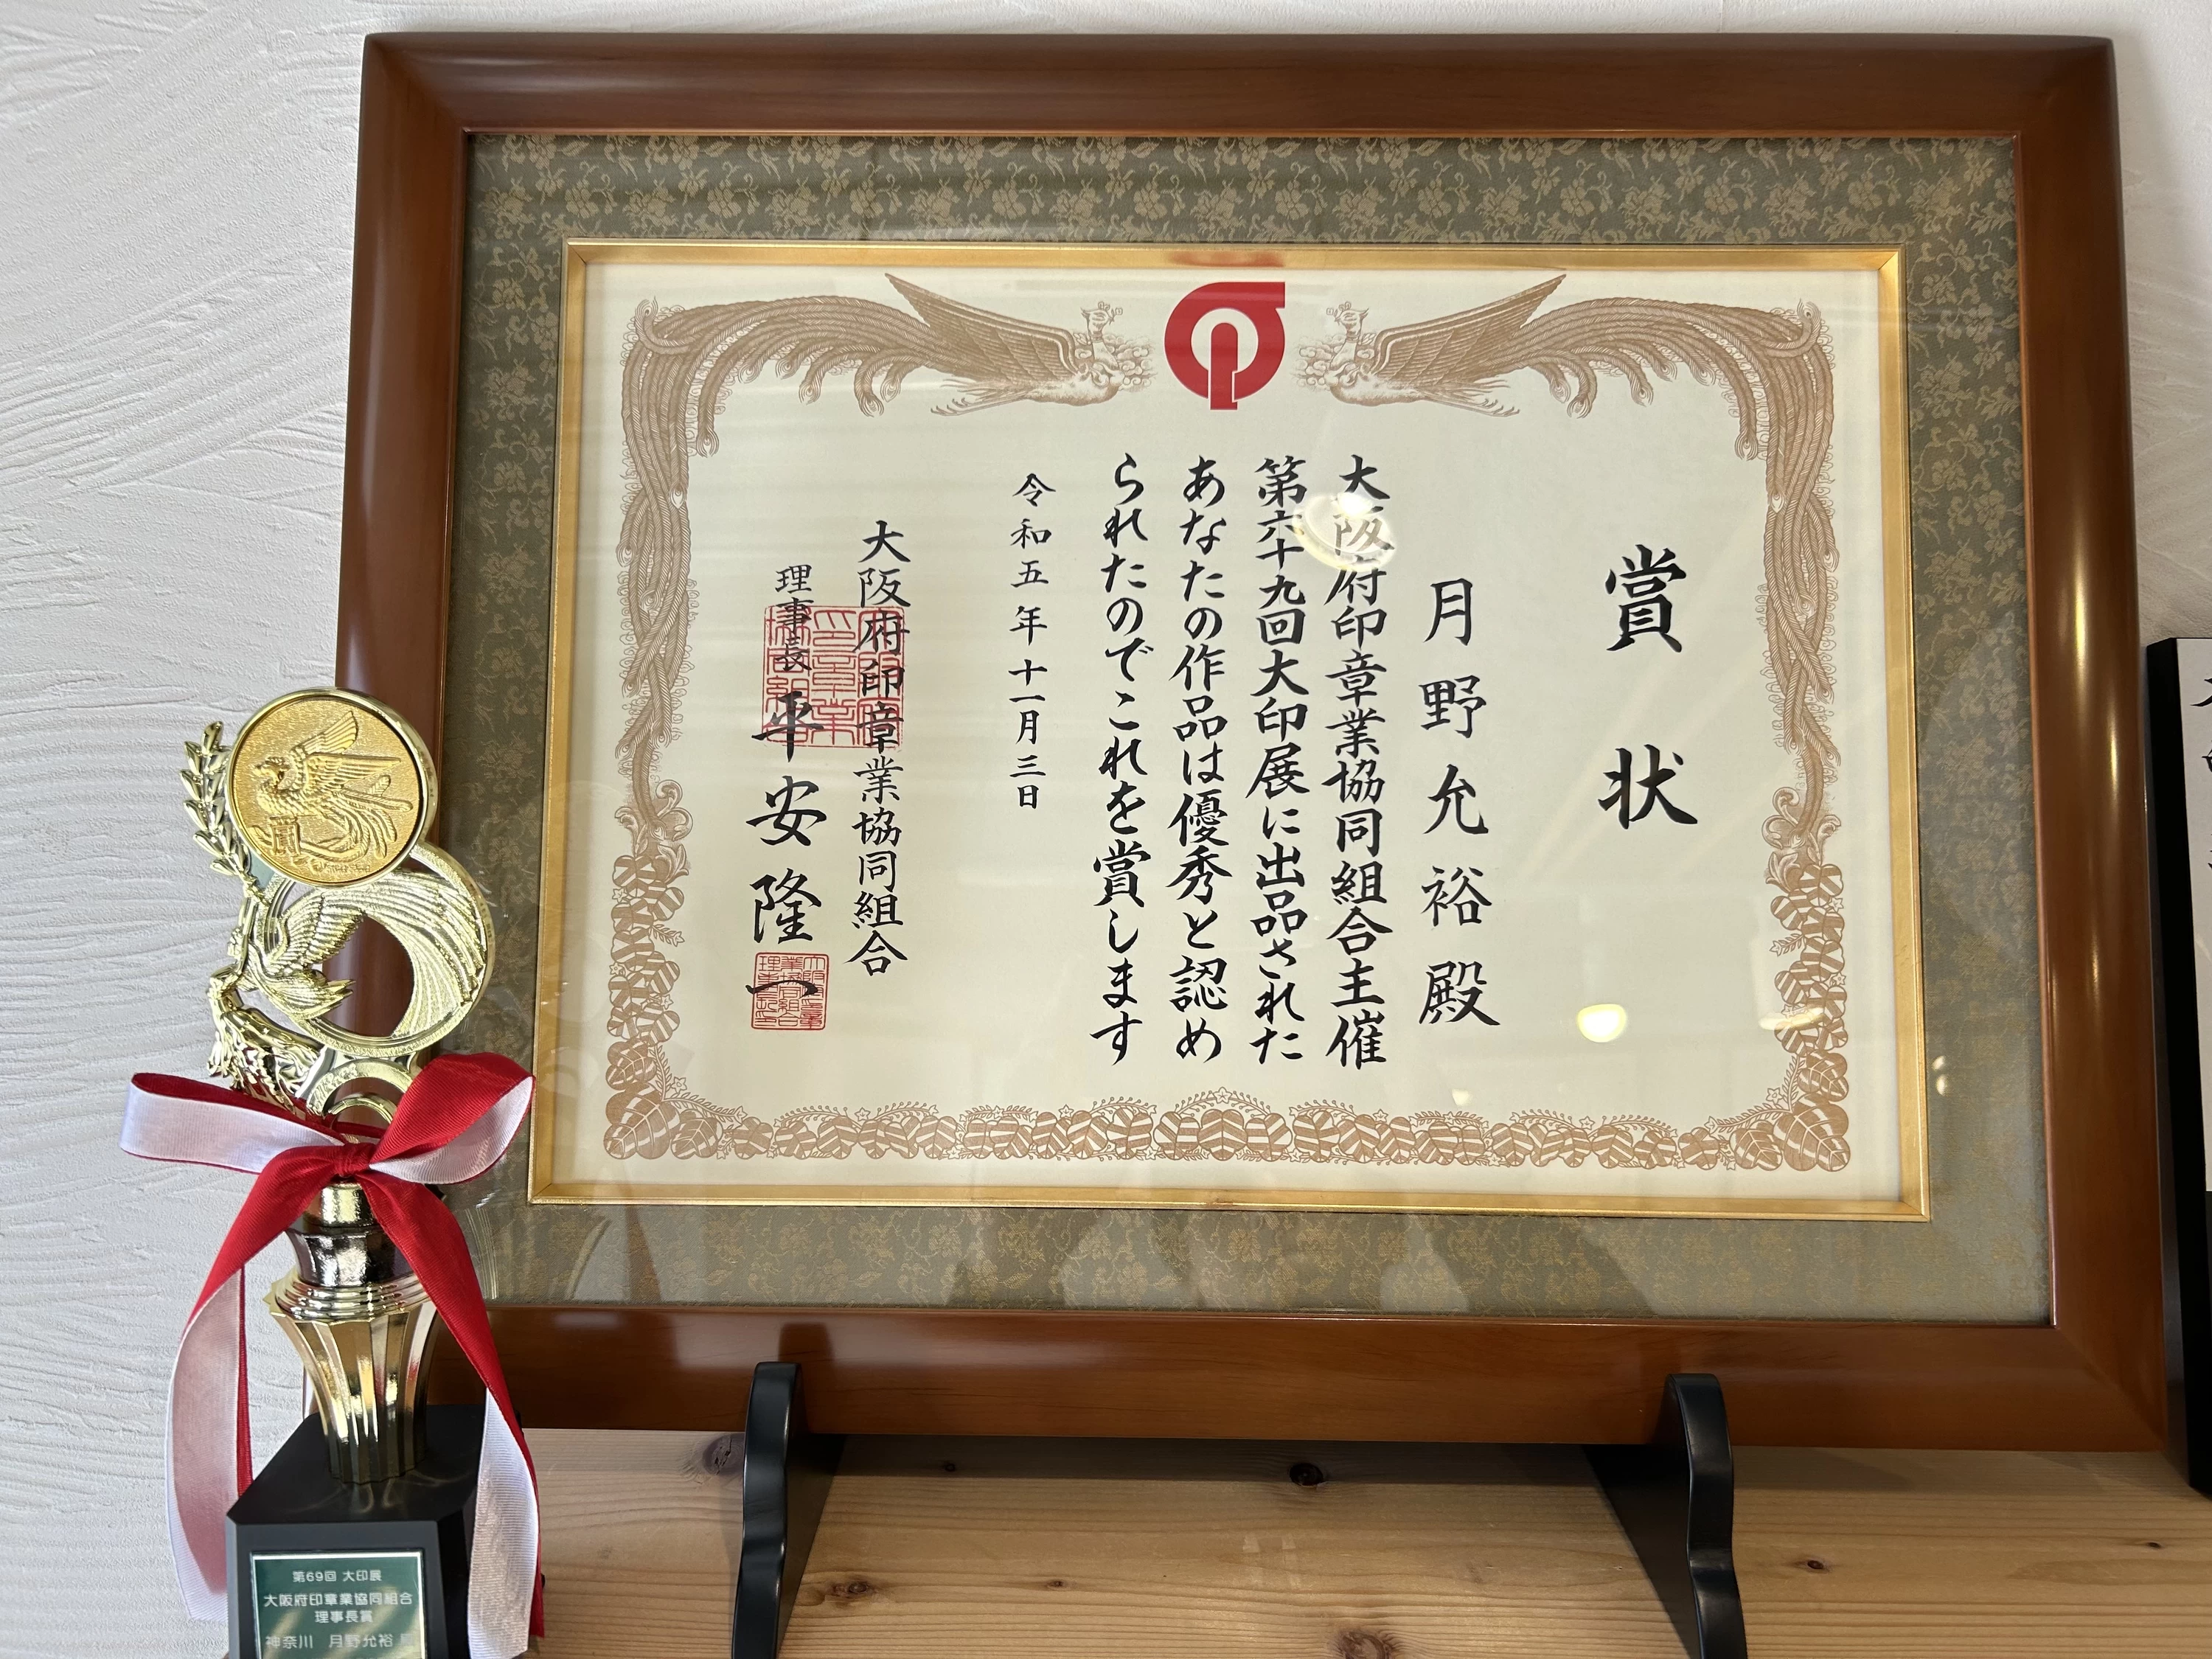 賞状
月野允裕殿
大阪府印章業協同組合主催
第六十九回大印展に出品された
あなたの作品は優秀と認め
られたのでこれを賞します
令和五年十一月三日
大阪府印章業協同組合
理事長 平安隆一
第69回 大印展
大阪府印章業協同組合
理事長賞
神奈川 月野允裕